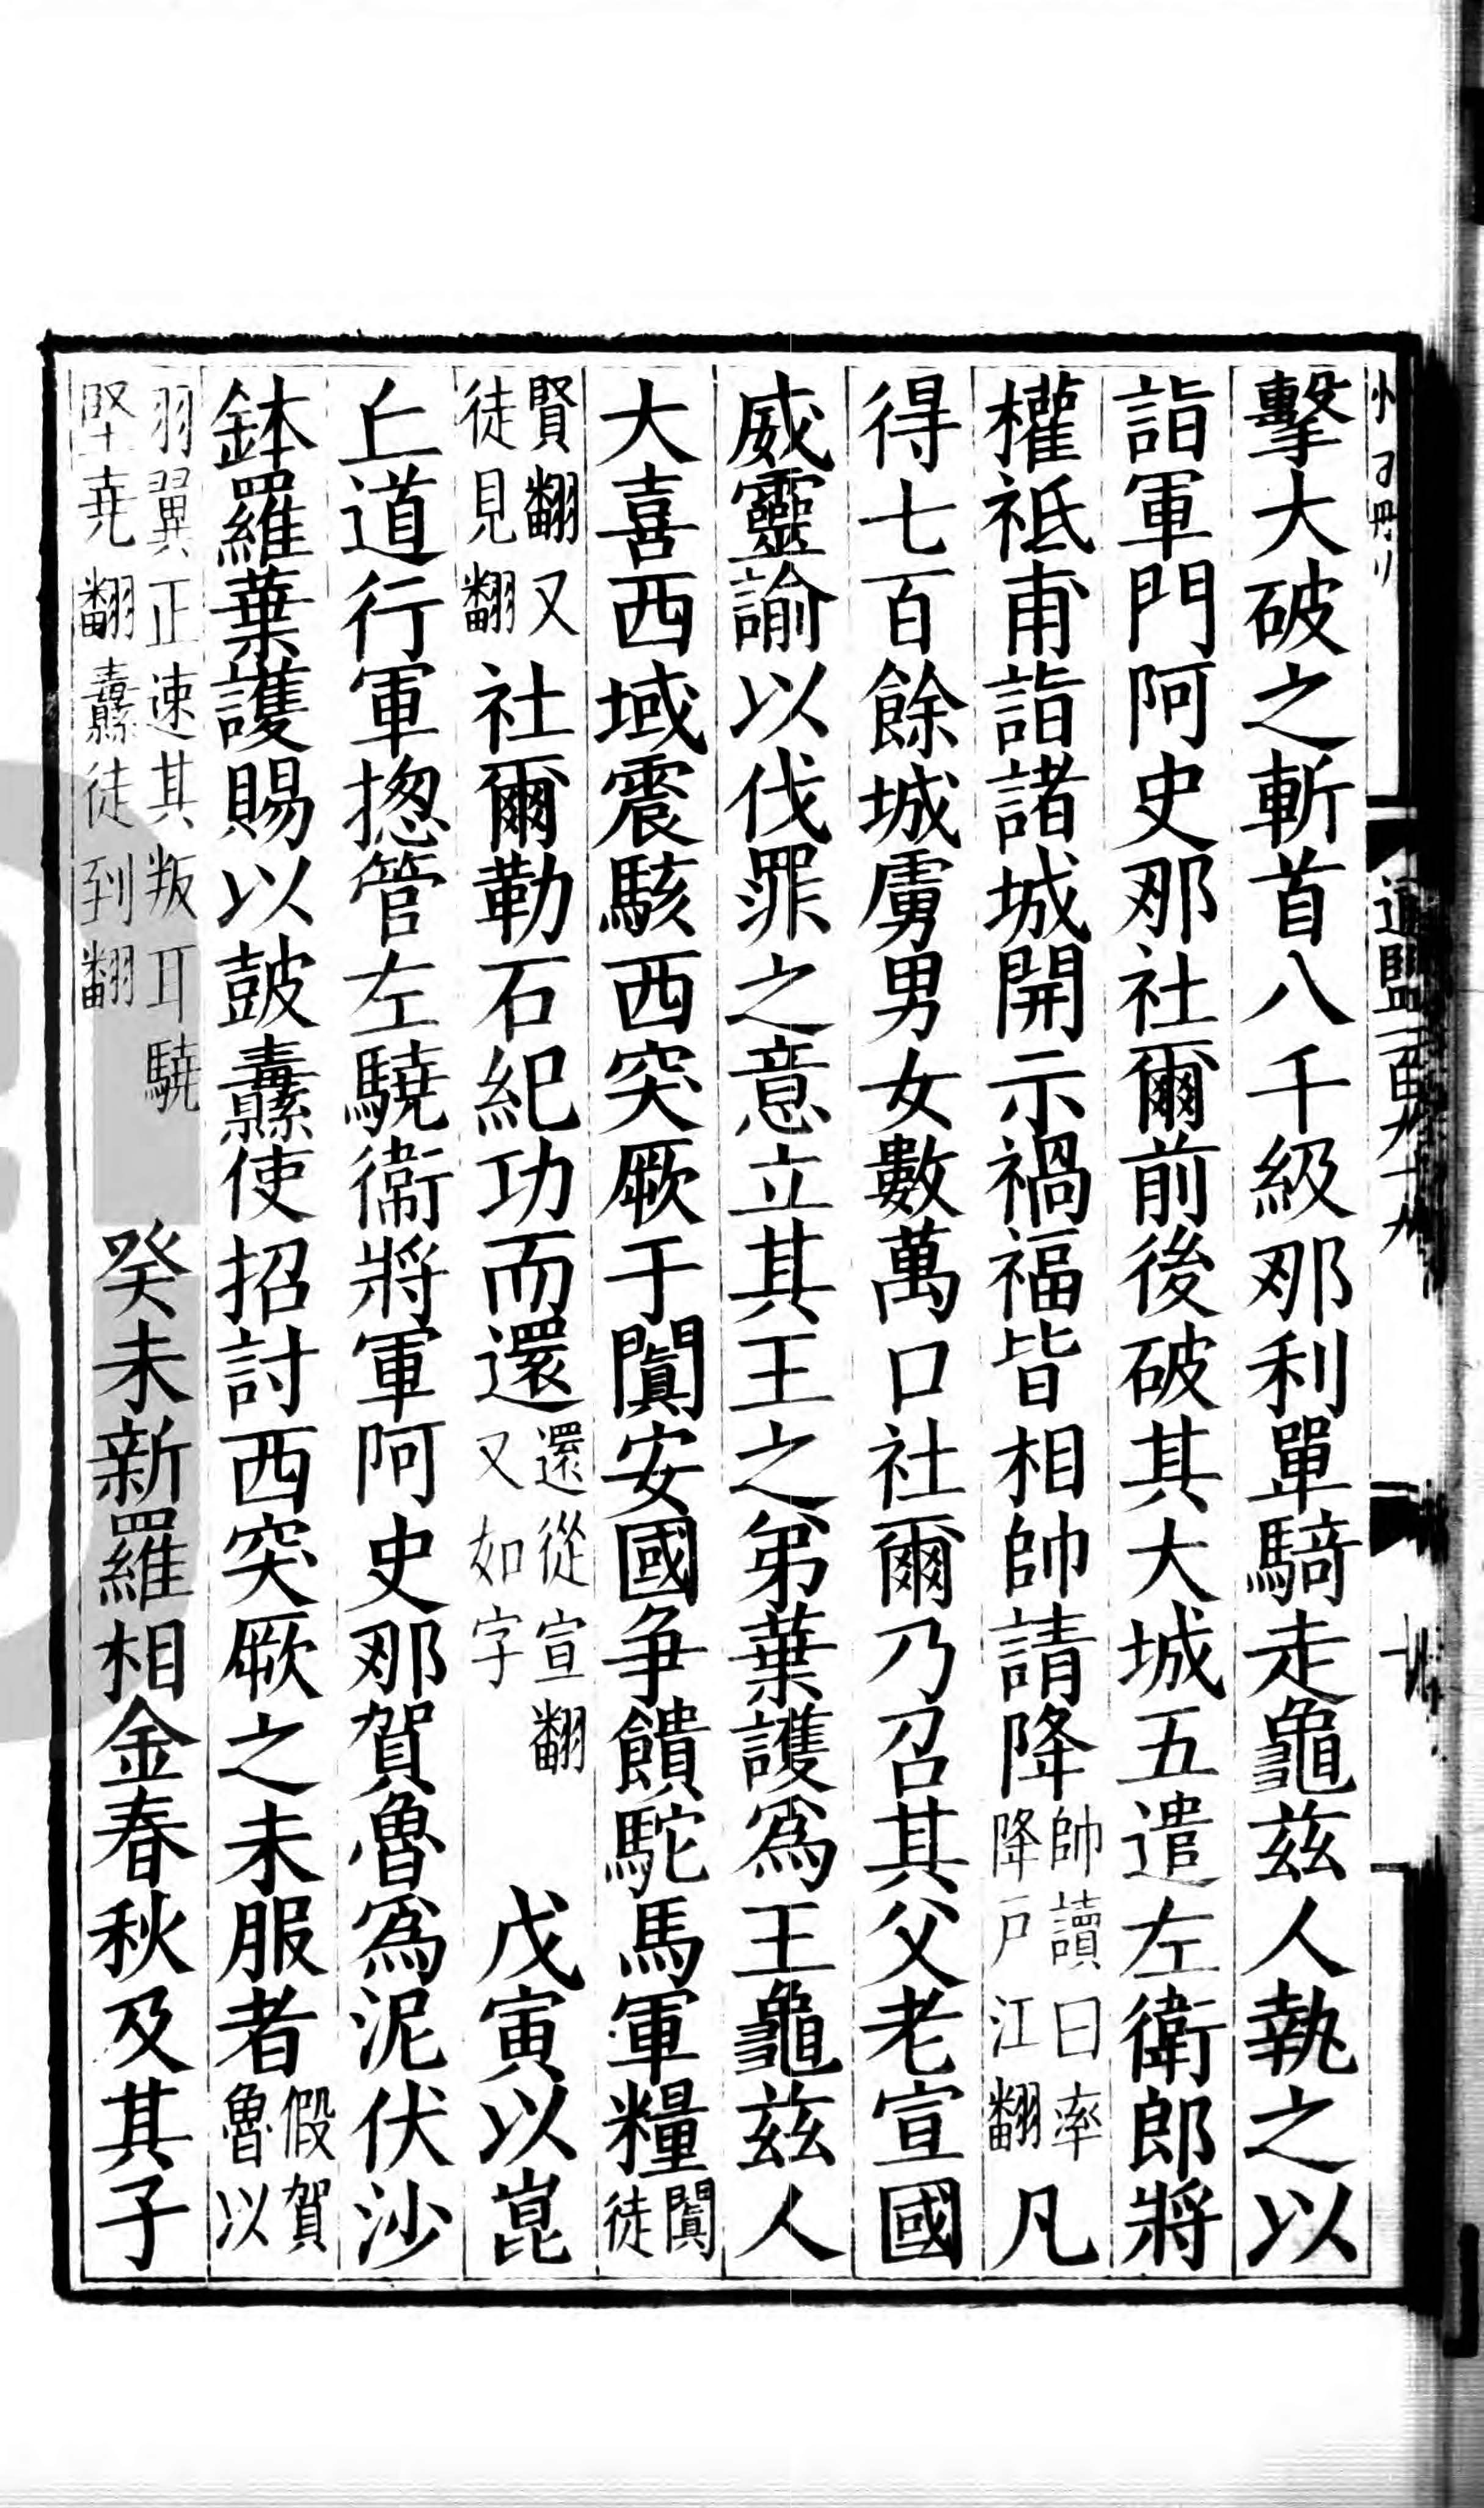 擊大破之斬首八千級那利單騎走龜兹人執之以
詣軍門阿史那社爾前後破其大城五遣左衛郎將
權祗甫詣諸城開示禍福皆相帥請降帥讀曰率降戸江翻凡
得七百餘城虜男女數萬口社爾乃召其父老宣國
威靈諭以伐罪之意立其王之弟葉護爲王龜兹人
大喜西域震駭西突厥于闐安國爭饋駝馬軍糧闐徒
賢翻又徒見翻社爾勒石紀功而還還從宣翻又如字 戊寅以崑
丘道行軍揔管左驍衞將軍阿史那賀魯爲泥伏沙
鉢羅葉護賜以鼓纛使招討西突厥之未服者假賀魯以
羽翼正速其叛耳驍堅堯翻纛徒到翻 癸未新羅相金春秋及其子
通鑑一百九十九